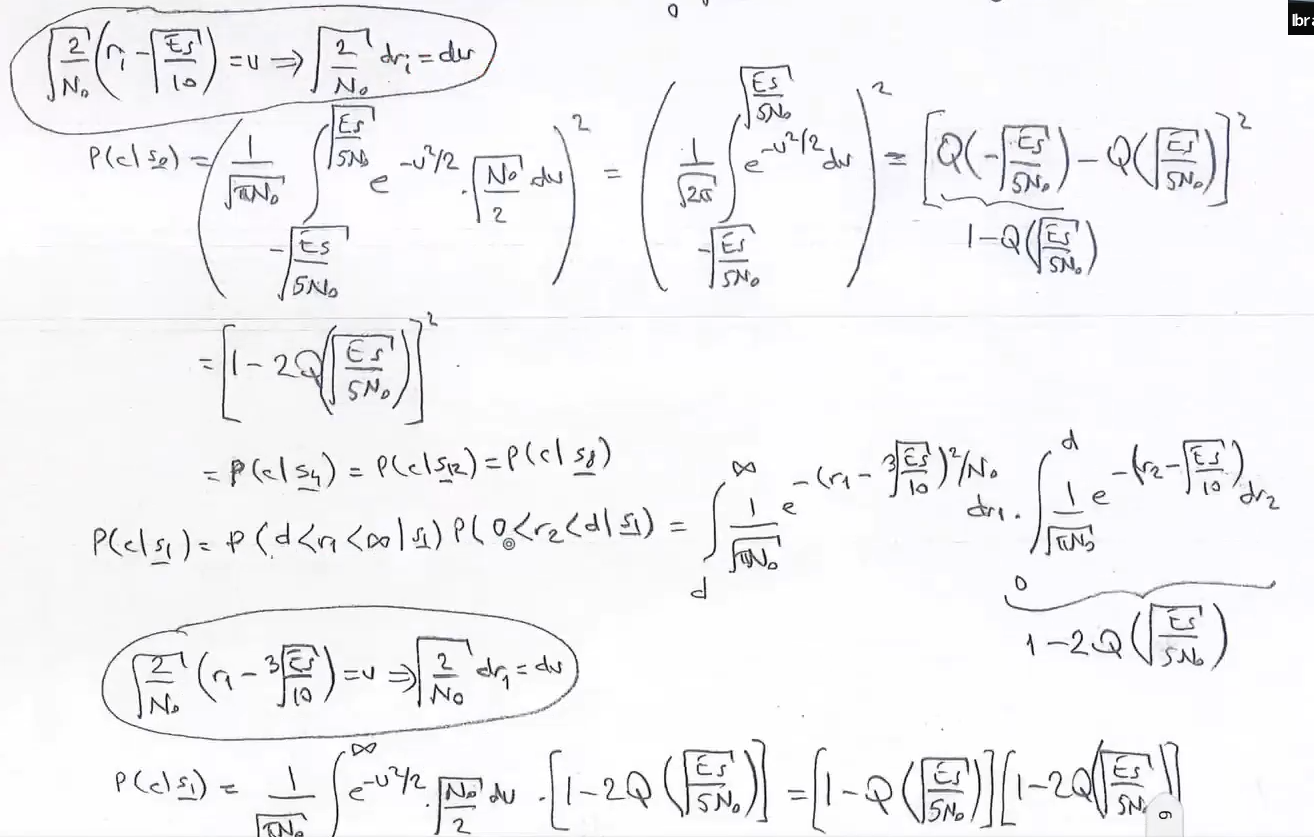 Ibra
√(2/N₀) (rᵢ − √(Es/10)) = u ⇒ √(2/N₀) drᵢ = du
P(c|s₀) = ( 1/√(πN₀) ∫_{−√(Es/5N₀)}^{√(Es/5N₀)} e^{−u²/2} · √(N₀/2) du )² = ( 1/√(2π) ∫_{−√(Es/5N₀)}^{√(Es/5N₀)} e^{−u²/2} du )² = [ Q(−√(Es/5N₀)) − Q(√(Es/5N₀)) ]²
1 − Q(√(Es/5N₀))
= [ 1 − 2Q(√(Es/5N₀)) ]²
= P(c|s₄) = P(c|s₁₂) = P(c|s₈)
P(c|s₁) = P(d<r₁<∞|s₁) P(0<r₂<d|s₁) = ∫_d^∞ 1/√(πN₀) e^{−(r₁ − 3√(Es/10))²/N₀} dr₁ · ∫_0^d 1/√(πN₀) e^{−(r₂−√(Es/10))} dr₂
1 − 2Q(√(Es/5N₀))
√(2/N₀) (r₁ − 3√(Es/10)) = u ⇒ √(2/N₀) dr₁ = du
P(c|s₁) = 1/√(πN₀) ∫^∞ e^{−u²/2} · √(N₀/2) du · [ 1 − 2Q(√(Es/5N₀)) ] = [ 1 − Q(√(Es/5N₀)) ] [ 1 − 2Q(√(Es/5N₀)) ]